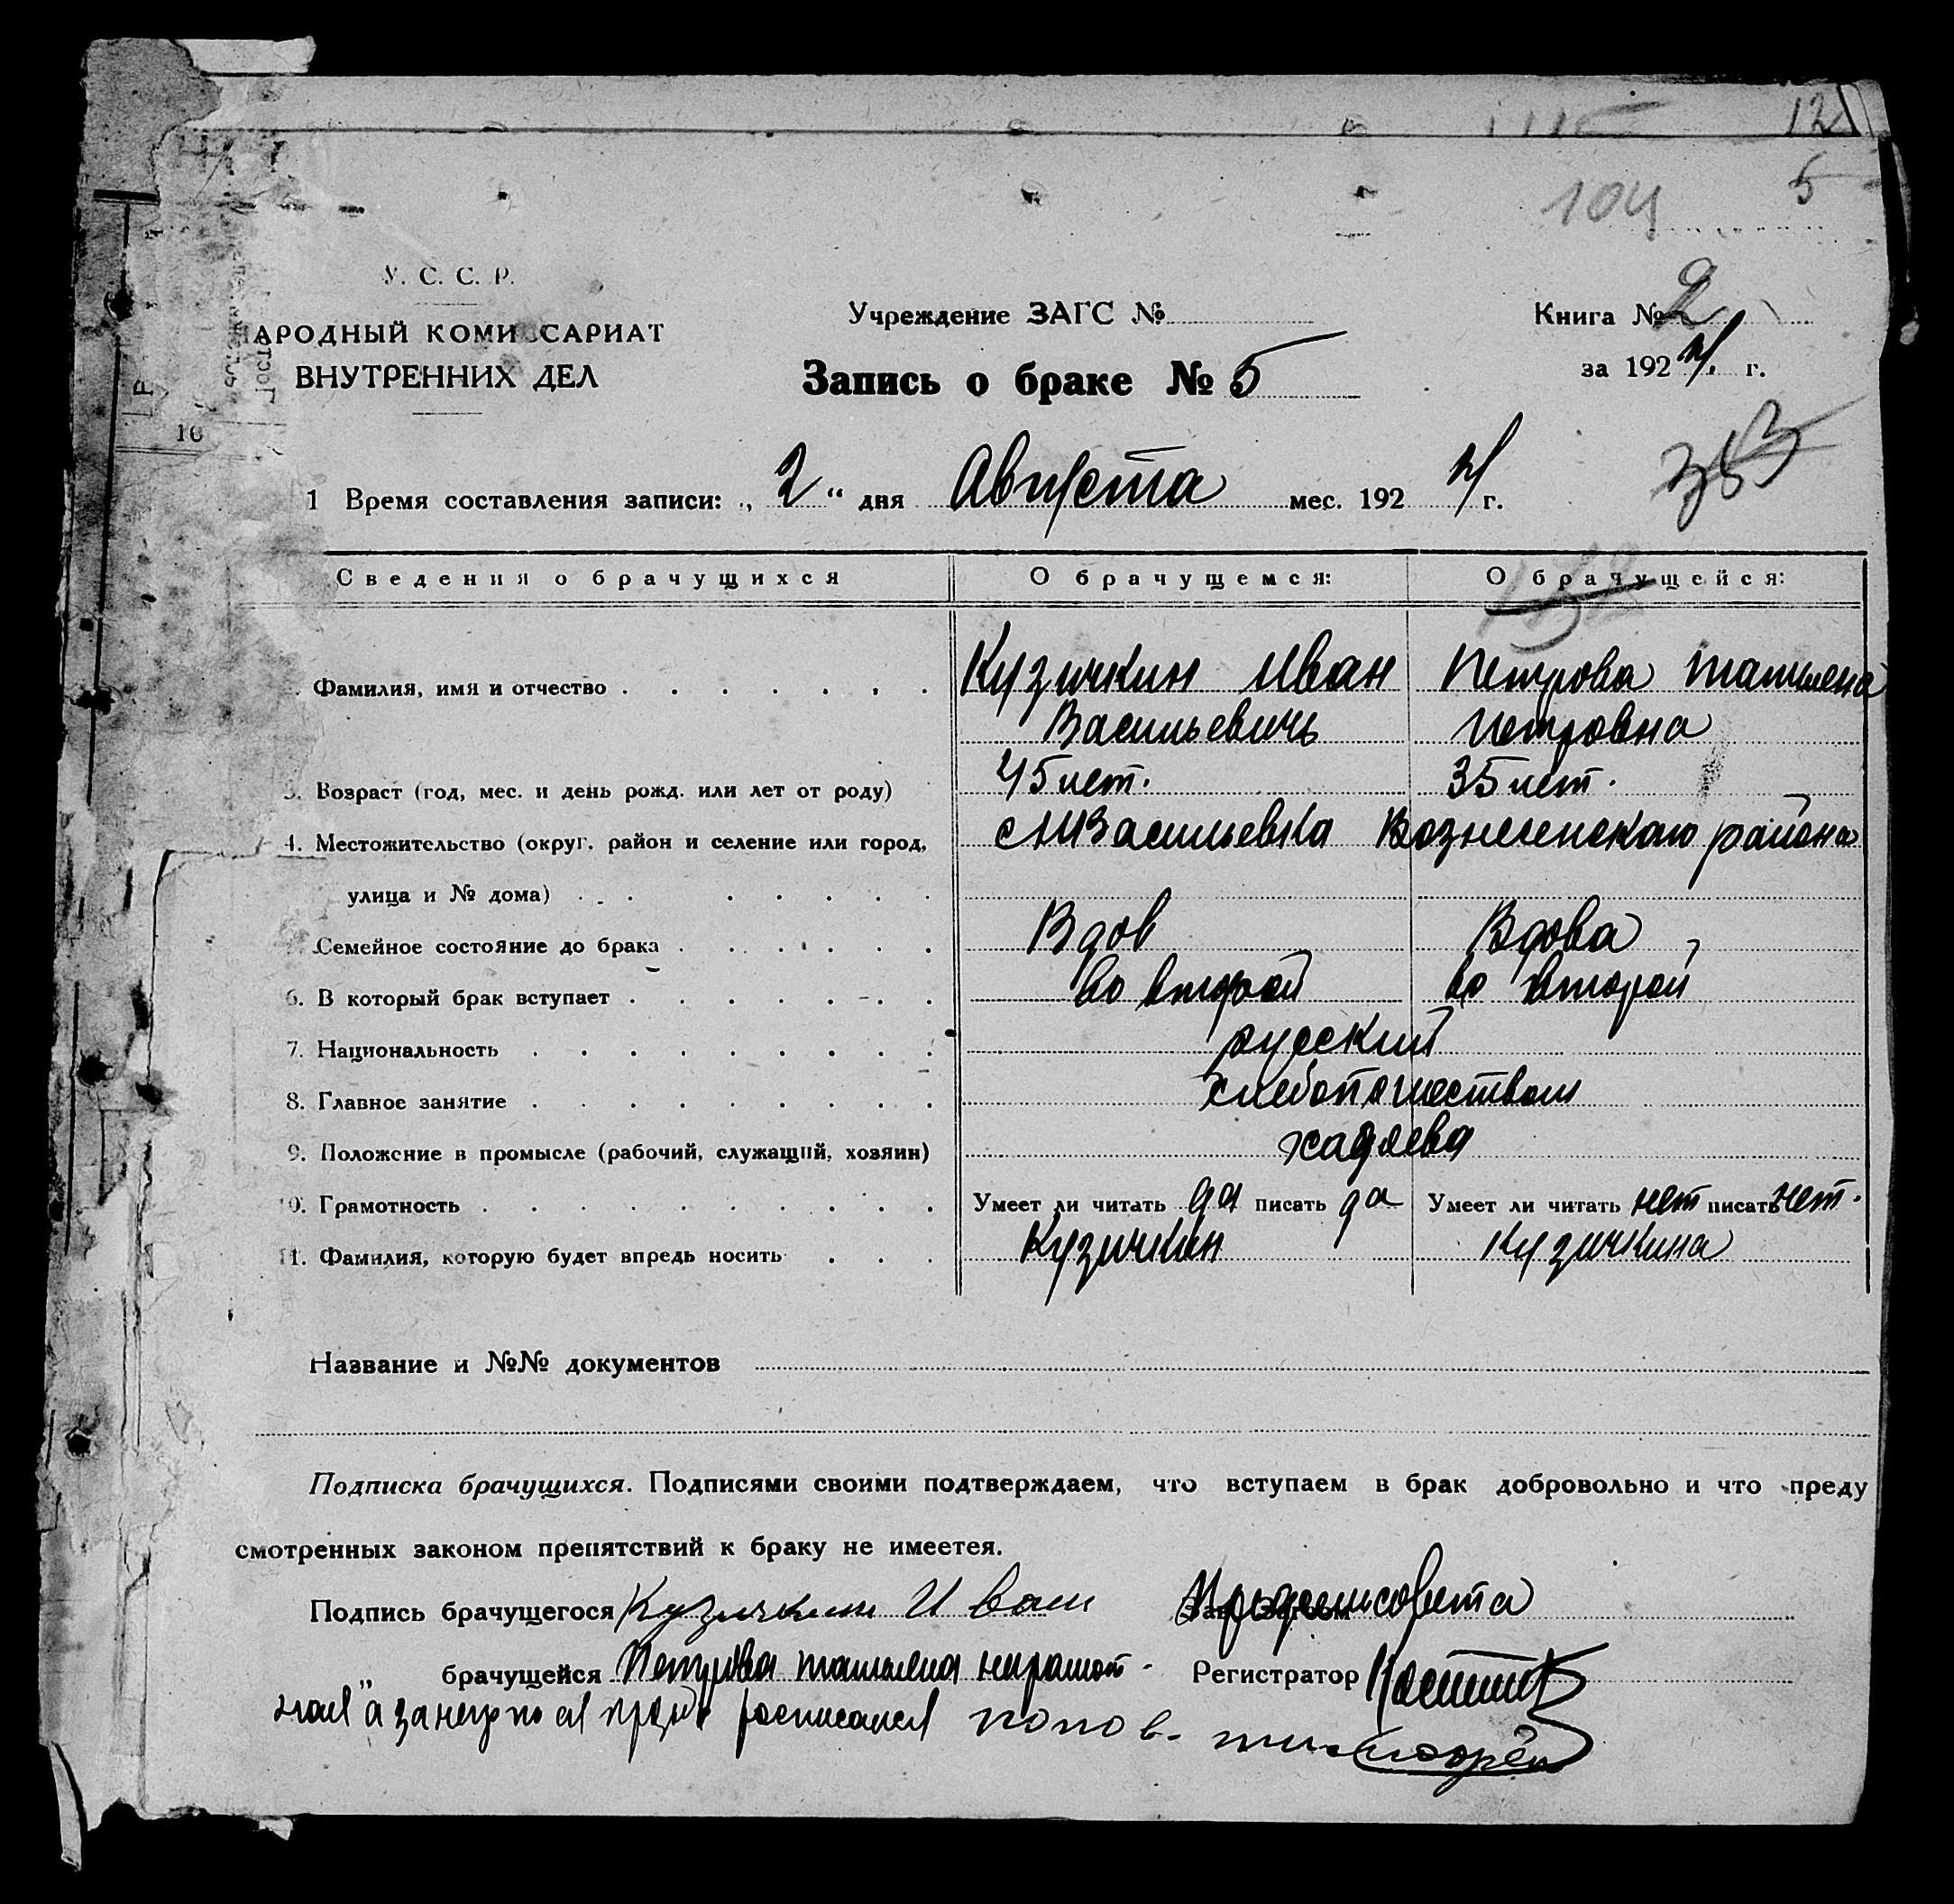 12
5
104
У. С. С. Р.
АРОДНЫЙ КОМИССАРИАТ
ВНУТРЕННИХ ДЕЛ
16
Учреждение ЗАГС №
Запись о браке № 5
Книга № 2
за 1924 г.
353
1 Время составления записи: „ 2 “ дня Августа мес. 192 4 г.
Сведения о брачущихся О брачущемся: О брачущейся:
Фамилия, имя и отчество Кузичкин Иван Петрова Татиена
Васильевичь Петровна
3. Возраст (год, мес. и день рожд. или лет от роду) 45 лет. 35 лет.
4. Местожительство (округ, район и селение или город, Васильевка Вознесенскаю района
улица и № дома)
Семейное состояние до брака Вдов Вдова
6. В который брак вступает во второй во второй
7. Национальность русский
8. Главное занятие
9. Положение в промысле (рабочий, служащий, хозяин)
10. Грамотность Умеет ли читать да писать да Умеет ли читать нет писать нет.
11. Фамилия, которую будет впредь носить Кузичкин Кузичкина
Название и №№ документов
Подписка брачущихся. Подписями своими подтверждаем, что вступаем в брак добровольно и что преду
смотренных законом препятствий к браку не имеетея.
Подпись брачущегося Кузичкин Иван
„ брачущейся Петрова Татиена Регистратор
а за расписался Попов